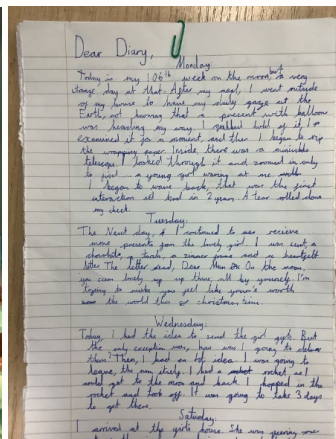 Dear Diary,
Monday:
Today is my 106th week on the moon but a very
strange day at that. After my meal, I went outside
of my house to have my daily gaze at the
Earth, not knowing that a present with balloon
was heading my way. I grabbed hold of it, I
examined it for a moment and then I began to rip
the wrapping paper. Inside, there was a miniable
telescope. I looked through it and zoomed in only
to find a young girl waving at me
I began to wave back, that was the first
interaction in 2 years. A tear rolled down
my cheek.
Tuesday:
The Next day, I continued to recieve
more presents from the lovely girl. I was sent a
chocolate, a torch, a game and a heartfelt
letter. The letter said, Dear Man On the moon,
you seem lonely up there all by yourself. I'm
trying to make you feel like you're worth
the world this christmas time.
Wednesday:
Today, I had the idea to send the girl gifts. But
the only exception was, how was I going to deliver
them? Then, I had an idea. I was going to
leave the moon itself. I had a rocket so I
could get to the moon and back. I hopped in the
rocket and took off. It was going to take 3 days
to get there.
Saturday:
I arrived at the girls house. She was peering